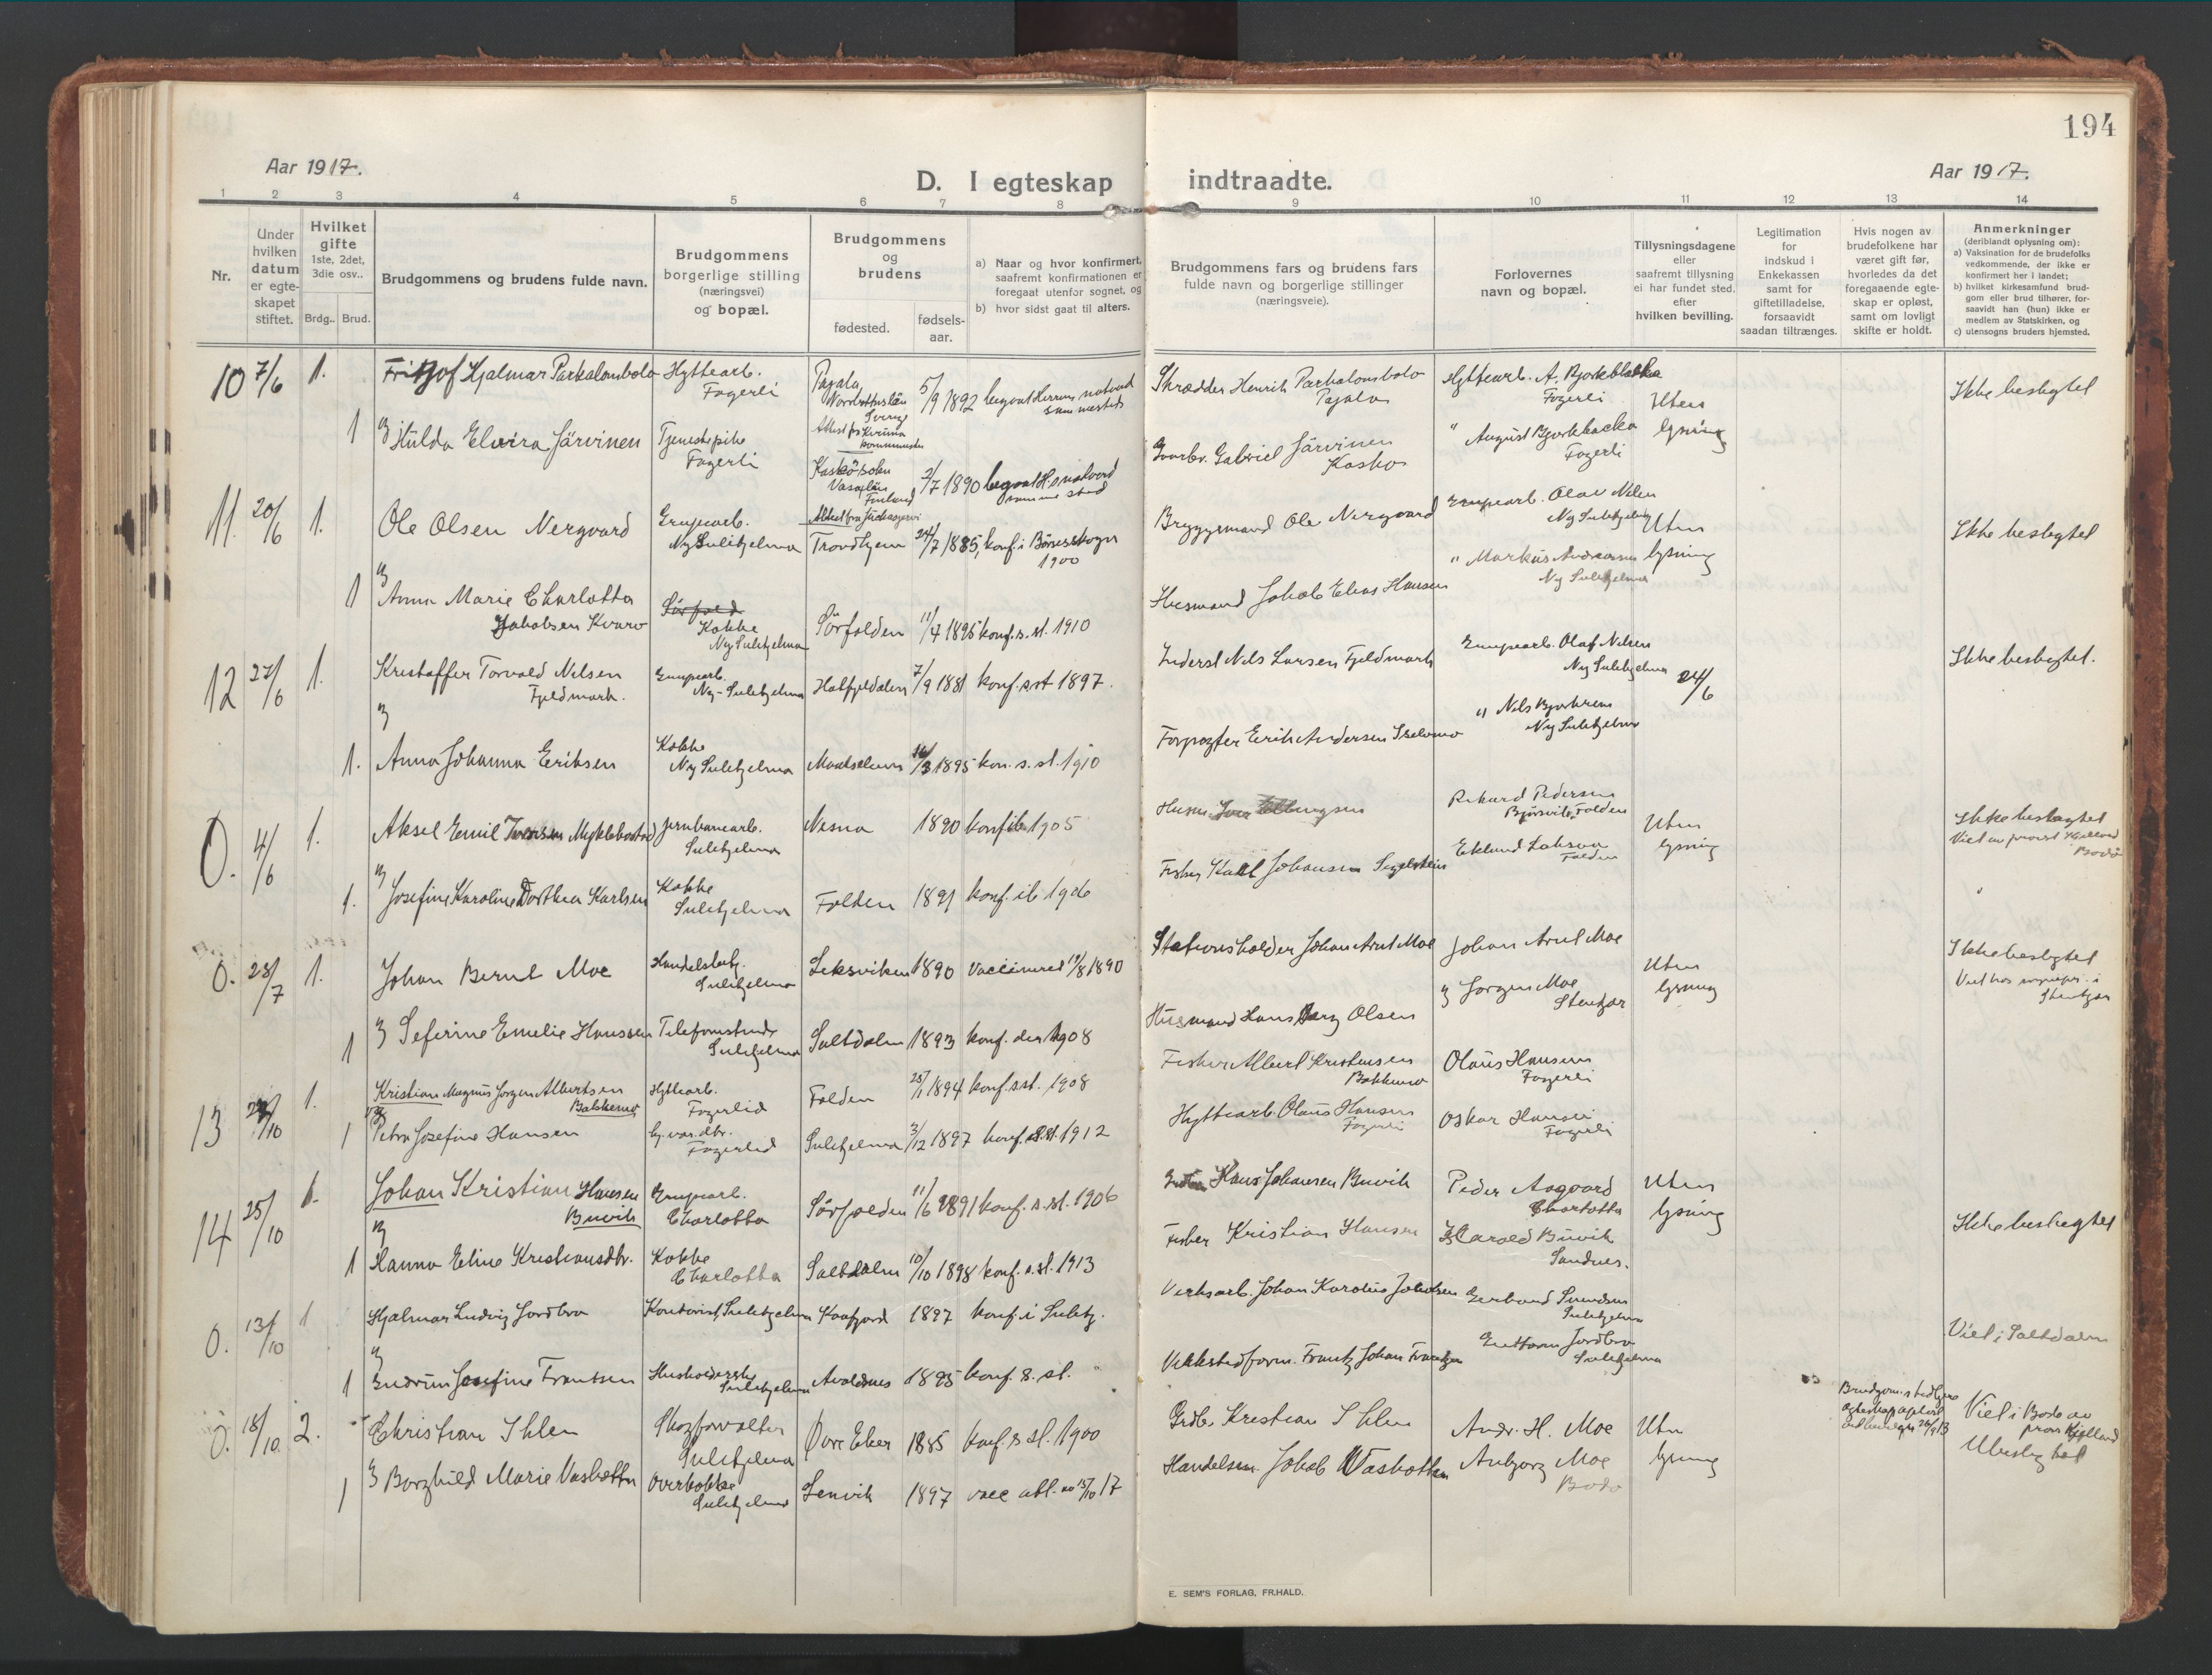 194
Aar 1917.
D. I egteskap indtraadte.
Aar 1917.
1 2 3 4 5 6 7 8 9 10 11 12 13 14
Nr.
Under
hvilken
datum
er egte-
skapet
stiftet.
Hvilket
gifte
1ste, 2det,
3die osv..
Brdg.. Brud.
Brudgommens og brudens fulde navn.
Brudgommens
borgerlige stilling
(næringsvei)
og bopæl.
Brudgommens
og
brudens
fødested.
fødsels-
aar.
a) Naar og hvor konfirmert,
saafremt konfirmationen er
foregaat utenfor sognet, og
b) hvor sidst gaat til alters.
Brudgommens fars og brudens fars
fulde navn og borgerlige stillinger
(næringsveie).
Forlovernes
navn og bopæl.
Tillysningsdagene
eller
saafremt tillysning
ei har fundet sted,
efter
hvilken bevilling.
Legitimation
for
indskud i
Enkekassen
samt for
giftetilladelse,
forsaavidt
saadan tiltrænges.
Hvis nogen av
brudefolkene har
været gift før,
hvorledes da det
foregaaende egte-
skap er opløst,
samt om lovligt
skifte er holdt.
Anmerkninger
(deriblandt oplysning om):
a) Vaksination for de brudefolks
vedkommende, der ikke er
konfirmert her i landet;
b) hvilket kirkesamfund brud-
gom eller brud tilhører, for-
saavidt han (hun) ikke er
medlem av Statskirken, og
c) utensogns bruders hjemsted.
10 7/6 1. Fritjof Hjalmar Parkalombolo Hyttearb.
Fagerli
Pajala
Norrbottenslän
Sverige
5/9 1892
Skrædder Henrik Parkalombolo
Pajala
Hyttearb. A. Bjorkbacka
Fagerli
Uten
lysning
Ikke beslegtet
1 Hulda Elvira Järvinen Tjenestepike
Fagerli
Kaskö
Vasa län
Finland
2/7 1890
Gabriel Järvinen
Kasko
" August Bjorkbacka
Fagerli
11. 20/6 1. Ole Olsen Nergaard Grupearb.
Ny Sulitjelma Trondhjem 24/7 1885, konf. i Børseskogn
1900
Bryggemand Ole Nergaard
Grupearb. Olav Nilsen
Ny Sulitjelma
Uten
lysning
Ikke beslegtet
1 Anna Marie Charlotta
Jakobsen Kvarv
Kokke
Ny Sulitjelma
Sørfolden 11/7 1895 konf. s. st. 1910
Husmand Jakob Elias Hansen
" Markus Andreassen
Ny Sulitjelma
12 27/6 1. Kristoffer Torvald Nilsen
Fjeldmark.
Grupearb.
Ny-Sulitjelma
Hatfjeldalen 7/9 1881 konf. s st 1897.
Inderst Nils Larsen Fjeldmark
Grupearb. Olaf Nilsen
Ny Sulitjelma
24/6
Ikke beslegtet.
1. Anna Johanna Eriksen Kokke
Ny Sulitjelma
1895 kon. s. st. 1910
Forpagter Erik Andersen
" Nils
Ny Sulitjelma
0. 4/6 1. Aksel Emil Iversen Myklebostad Jernbanearb.
Sulitjelma
Nesna 1890 1905
Husm. Iver
Rikard Pedersen
Folden
Uten
lysning
Ikke beslegtet
Viet av provst Kjelland
Bodø
1. Josefine Karoline Dorthea Karlsen Kokke
Sulitjelma
Folden 1891 konf. ib 1906
Fisker Karl Johansen
Eklund
Folden
0. 28/7 1. Johan Bernt Moe
Sulitjelma
Leksviken 1890 Vaccineret 19/8 1890
Stationsholder Johan Arnt Moe Johan Arnt Moe
Uten
lysning
Ikke beslegtet
Viet hos sognepr. i
Stenkjær
1 Seferine Emelie Hanssen
Sulitjelma
Saltdalen 1893 konf. der 1908
Husmand Hans Olsen
Jørgen Moe
Stenkjær
13 1. Kristian Magnus Jørgen Albertsen
Bakkemo
Hyttearb.
Fagerlid
Folden 1894 konf. s. st. 1908
Fisker Albert Kristensen
Bakkemo
Olaus Hansen
Fagerli
1 Petra Josefine Hansen
Fagerlid
Sulitjelma 3/12 1897 konf. s. st. 1912
Hyttearb. Olaus Hansen
Fagerli
Oskar Hansen
Fagerli
14 25/10 1. Johan Kristian Hansen
Buvik
Grupearb.
Charlotta
Sørfolden 11/6 1891 konf. s. st. 1906
Hans Johansen Buvik
Peder Aagaard
Charlotta
Uten
lysning
Ikke beslegtet
1 Hanna Eline Kristiansdtr. Kokke
Charlotta
Saltdalen 10/10 1898 konf. s. st. 1913
Fisker Kristian Hansen
Harald Buvik
Sandnes.
0. 13/10 1 Hjalmar Ludvig Jordbro Kontorist, Sulitjelma Kaafjord 1897 konf. i Sulitj.
Verksarb. Johan Karolius Jakobsen
Svendsen
Sulitjelma
Viet i Saltdalen
1 Gudrun Josefine Frantsen Husholderske
Sulitjelma
Avaldsnes 1895 konf. s. st. "
Frantz Johan Frantzen
Guttorm Jordbro
Sulitjelma
0. 18/10 2. Christian Ihlen Skogforvalter
Sulitjelma
Øvre Eker 1885 konf. s. st. 1900
Grdbr. Kristian Ihlen
Andr. H. Moe
Uten
lysning
Viet i Bodø av
provst Kjelland
Ubeslegtet
1 Borghild Marie Vashotten Overkokke
Sulitjelma
Lenvik 1897 vacc. att. av 15/10 17
Handelsm. Jakob Washotten
Anbjørg Moe
Bodø
E. SEM'S FORLAG, FR.HALD.